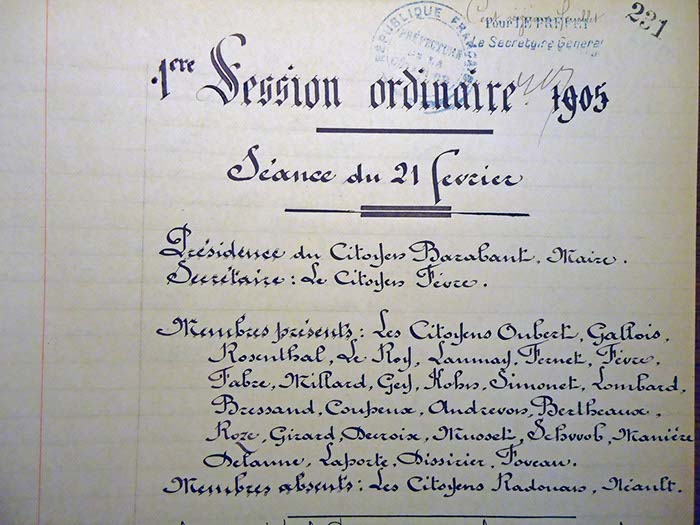 231
Pour LE PRÉFET
Le Secrétaire Général
RÉPUBLIQUE FRANÇAISE
PRÉFECTURE
DE LA
1ère Session ordinaire 1905
Séance du 21 fevrier
Présidence du Citoyen Barabant, Maire.
Secrétaire : Le Citoyen Fèvre.
Membres présents : Les Citoyens Oubert, Gallois,
Rosenthal, Le Roy, Launay, Fernet, Fèvre,
Fabre, Millard, Gey, Kohn, Simonet, Lombard,
Bressand, Coupeux, Andrevon, Bertheaux,
Roze, Girard, Decroix, Musset, Schwob, Manière
Delanne, Laporte, Dissirier, Foveau.
Membres absents : Les Citoyens Radouan, Néault.